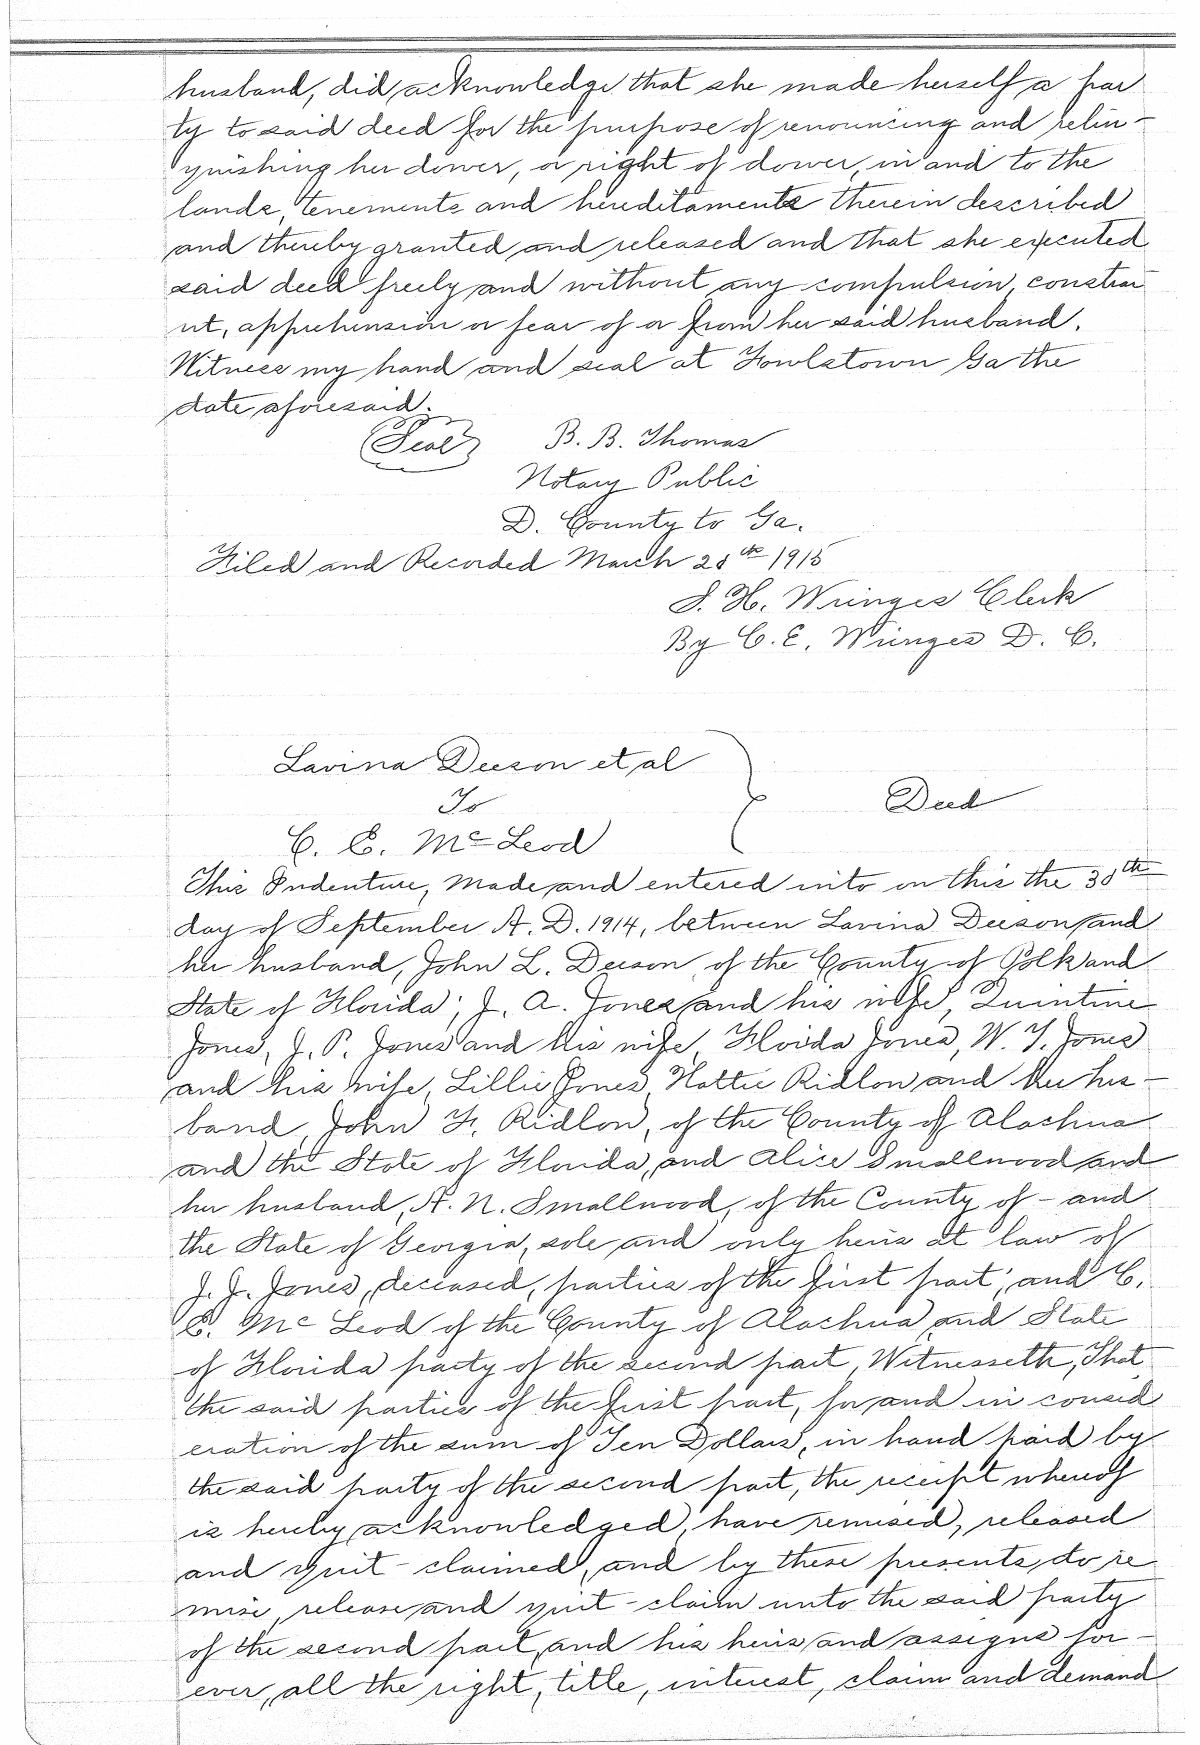 husband, did acknowledge that she made herself a par
ty to said deed for the purpose of renouncing and relin-
quishing her dower, or right of dower, in and to the
lands, tenements and hereditaments therein described
and thereby granted and released and that she executed
said deed freely and without any compulsion, constrai
nt, apprehension or fear of or from her said husband.
Witness my hand and seal at Fowlstown Ga the
date aforesaid.
(Seal) B. B. Thomas
Notary Public
D. County to Ga.
Filed and Recorded March 28th 1915
S. H. Wienges Clerk
By C. E. Wienges D. C.
Lavina Deeson et al
To
Deed
C. E. Mc Leod
This Indenture, Made and entered into on this the 30th
day of September A. D. 1914, between Lavina Deeson and
her husband, John L. Deeson, of the County of Polk and
State of Florida; J. A. Jones and his wife, Quintine
Jones, J. P. Jones and his wife, Floida Jones, W. T. Jones
and his wife, Lillie Jones, Hattie Ridlon and her hus-
band, John F. Ridlon, of the County of Alachua
and the State of Florida, and Alice Smallwood and
her husband, A. N. Smallwood, of the County of - and
the State of Georgia, sole and only heirs at law of
J. J. Jones, deceased, parties of the first part; and C.
E. Mc Leod of the County of Alachua and State
of Florida party of the second part, Witnesseth, That
the said parties of the first part, for and in consid
eration of the sum of Ten Dollars, in hand paid by
the said party of the second part, the receipt whereof
is hereby acknowledged, have remised, released
and quit-claimed, and by these presents, do re
mise, release and quit-claim unto the said party
of the second part, and his heirs and assigns for-
ever, all the right, title, interest, claim and demand